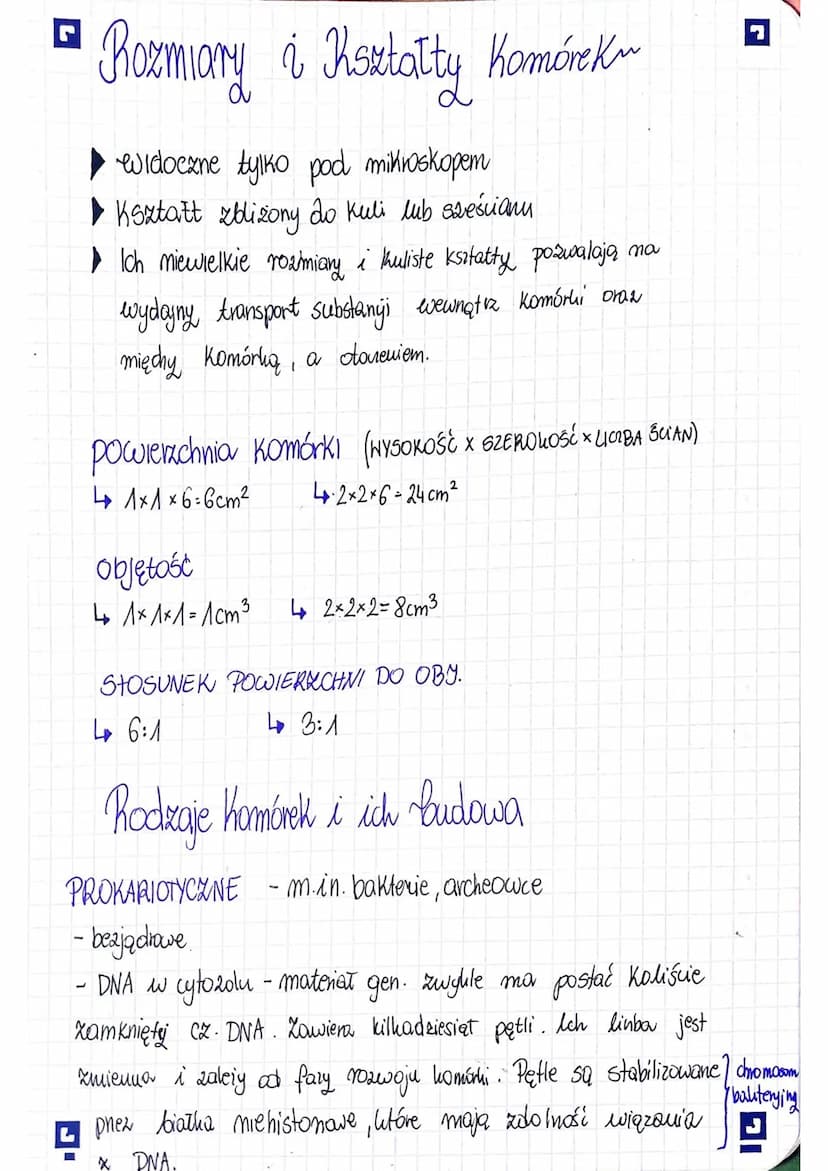 Rozmiary i Kształty Komórek
widoczne tylko pod mikroskopem
Kształt zbliżony do kuli lub sześcianu
Ich niewielkie rozmiary i kuliste kształty pozwalają na
wydajny transport substancji wewnątrz komórki oraz
między komórką, a otoczeniem.
powierzchnia komórki (WYSOKOŚĆ x SZEROKOŚĆ x LICZBA ŚCIAN)
↳ 1x1x6=6cm² ↳ 2x2x6=24cm²
objętość
↳ 1x1x1=1cm³ ↳ 2x2x2=8cm³
STOSUNEK POWIERZCHNI DO OBJ.
↳ 6:1 ↳ 3:1
Rodzaje komórek i ich budowa
PROKARIOTYCZNE - m.in. bakterie, archeowce
- bezjądrowe
- DNA w cytozolu - materiał gen. zwykle ma postać koliście
zamkniętej cz. DNA. Zawiera kilkadziesiąt pętli. Ich liczba jest
zmienna i zależy od fazy rozwoju komórki. Pętle są stabilizowane } chromosom
bakteryjny
przez białka niehistonowe, które mają zdolność wiązania
z DNA.